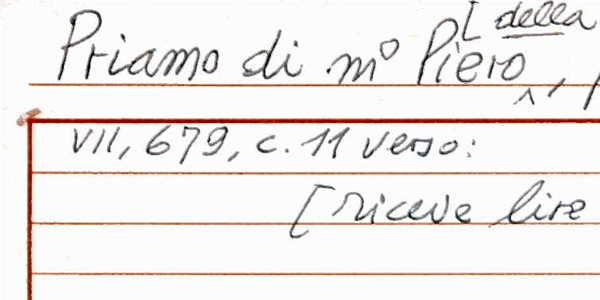 [ della
Priamo di mº Piero ^,
VII, 679, c. 11 verso:
[riceve lire